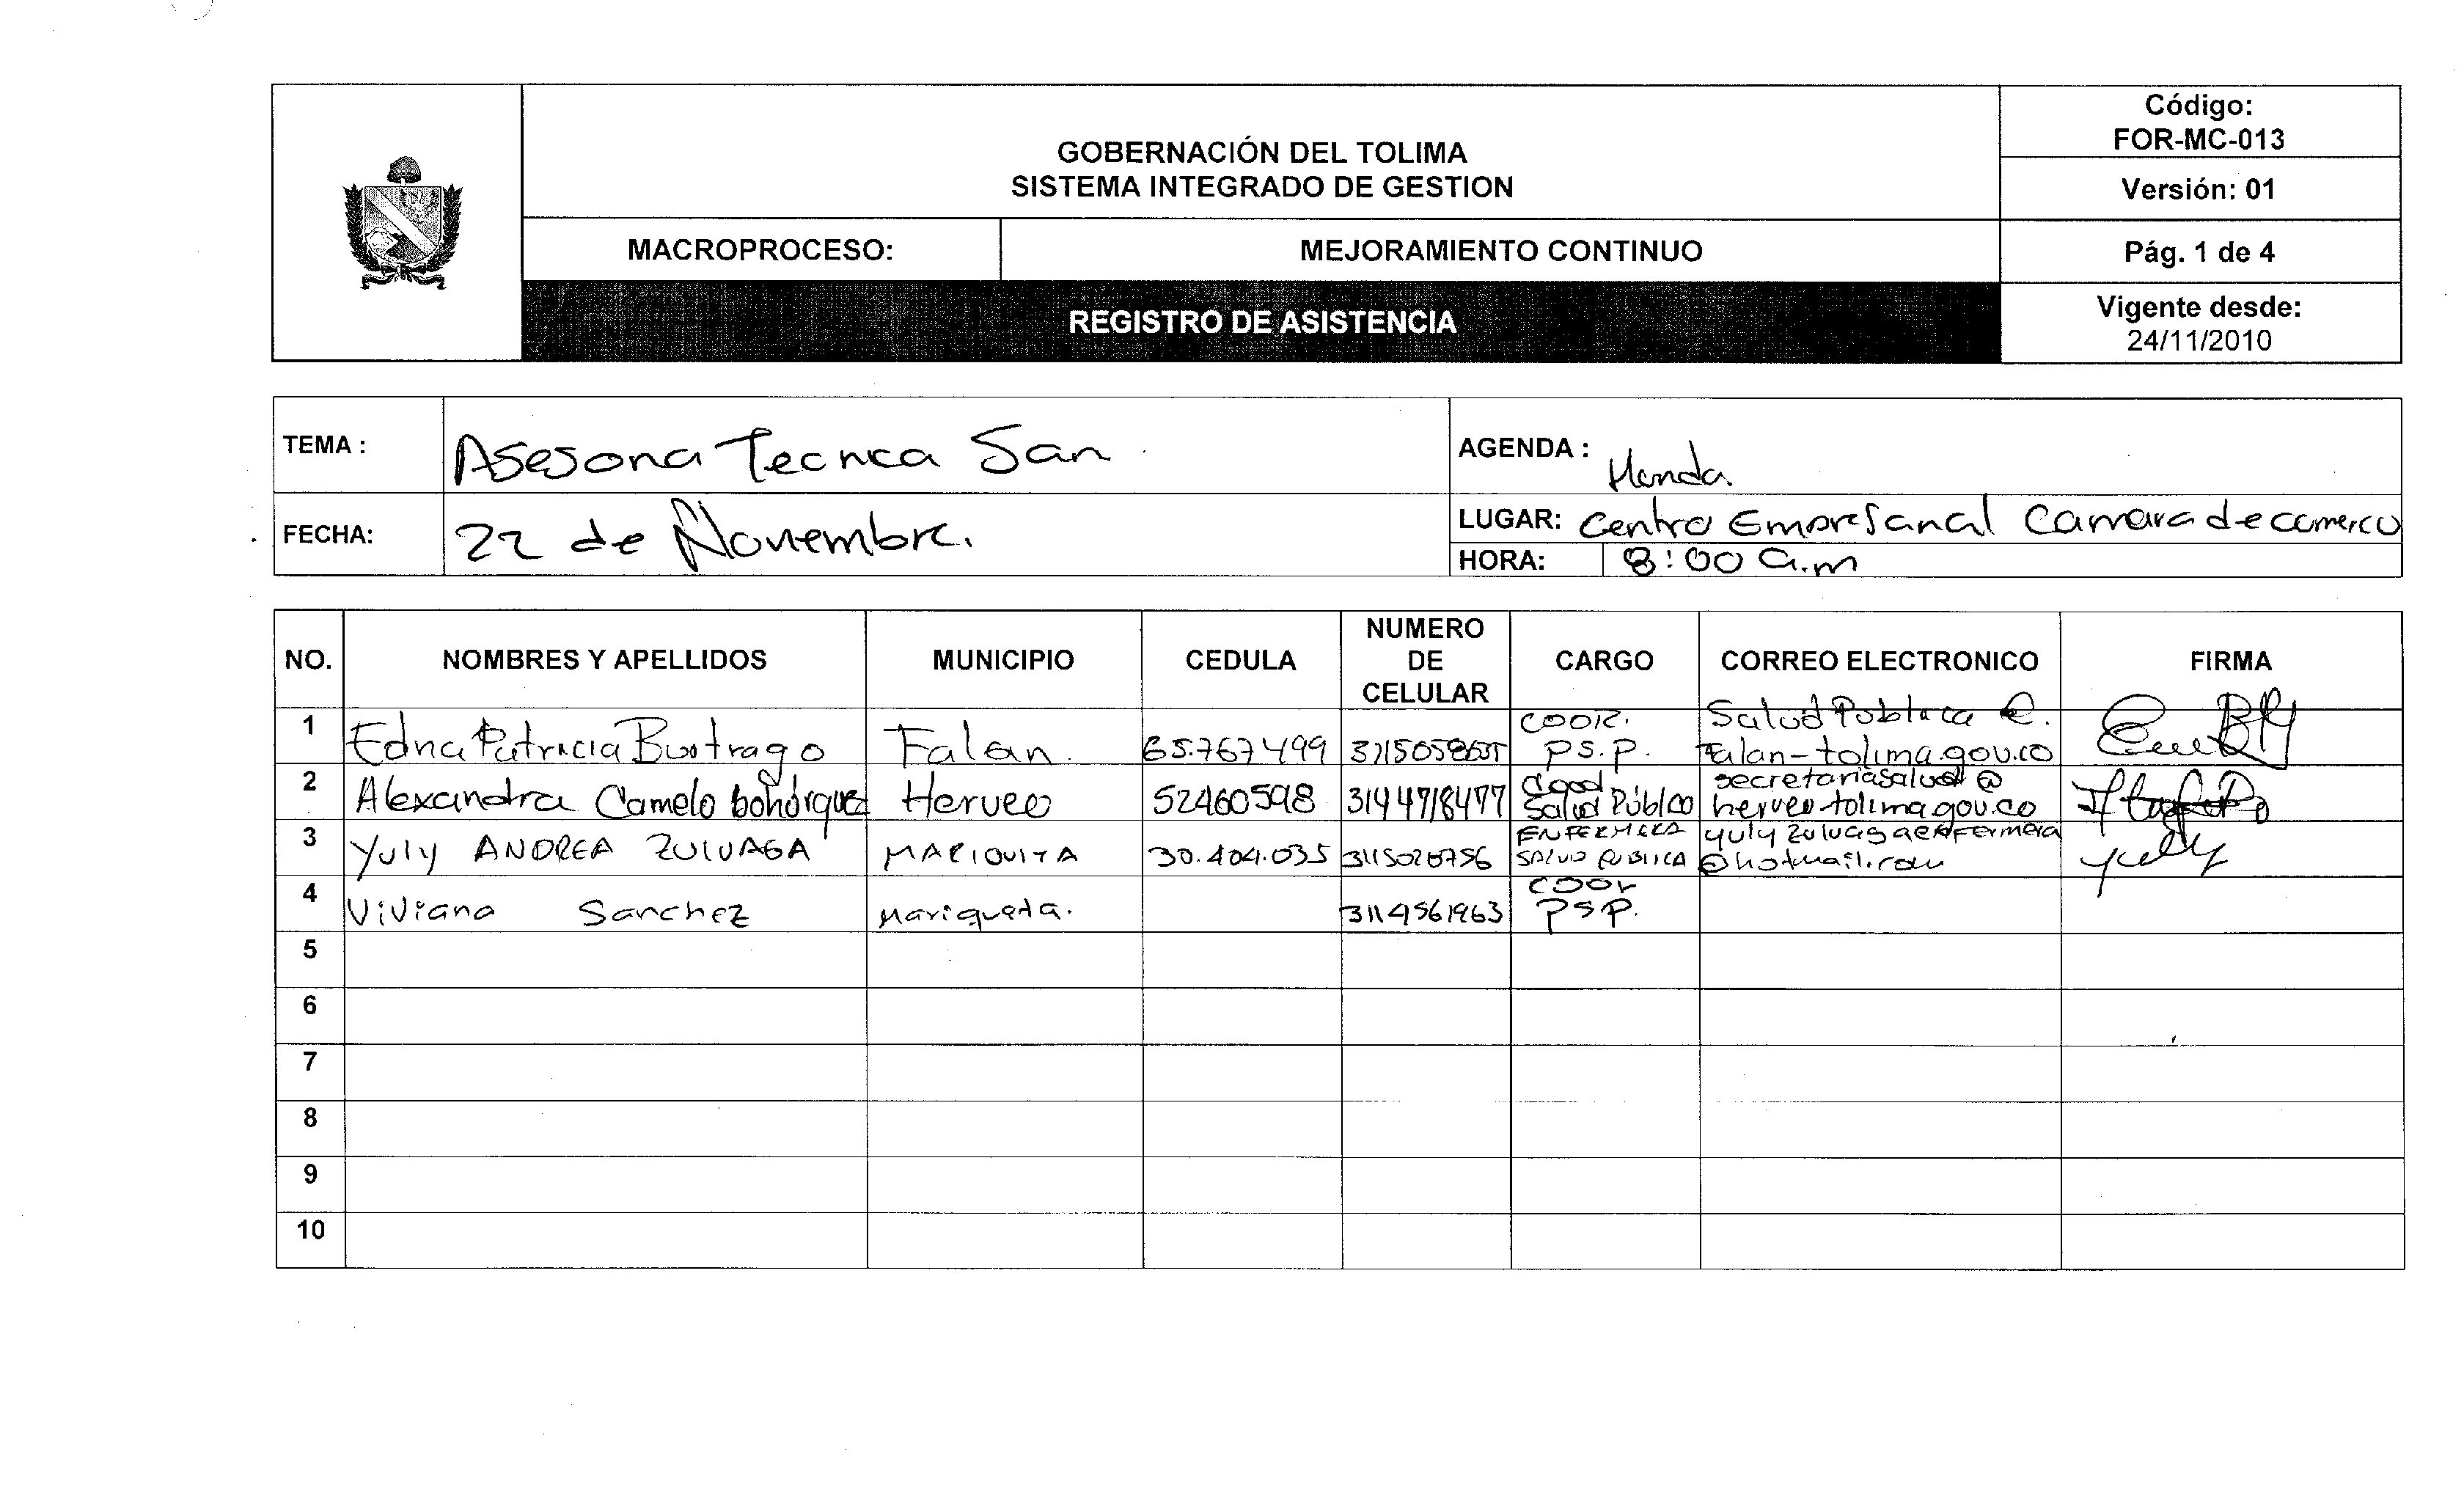 GOBERNACIÓN DEL TOLIMA
SISTEMA INTEGRADO DE GESTION
Código:
FOR-MC-013
Versión: 01
MACROPROCESO:
MEJORAMIENTO CONTINUO
Pág. 1 de 4
REGISTRO DE ASISTENCIA
Vigente desde:
24/11/2010
TEMA :
Asesoria Tecnica San
AGENDA :
Honda.
FECHA:
22 de Noviembre.
LUGAR: Centro Empresarial Camara de comercio
HORA: 8:00 a.m
NO. NOMBRES Y APELLIDOS MUNICIPIO CEDULA NUMERO DE CELULAR CARGO CORREO ELECTRONICO FIRMA
1 Edna Patricia Buitrago Falan. 65.767499 COOR. P.S.P. Salud Publica @. Falan-tolima.gov.co
2 Alexandra Camelo bohórquez Herveo 52460598 3144718477 Coord Salud Público secretariasalud @ herveo-tolima.gov.co
3 Yuly ANDREA ZULUAGA MARIQUITA 30.404.035 3115020756 ENFERMERA SALUD PUBLICA yulyzuluagaenfermera @hotmail.com yuly
4 Viviana Sanchez Mariquita. 3114561963 COOr PSP.
5
6
7
8
9
10